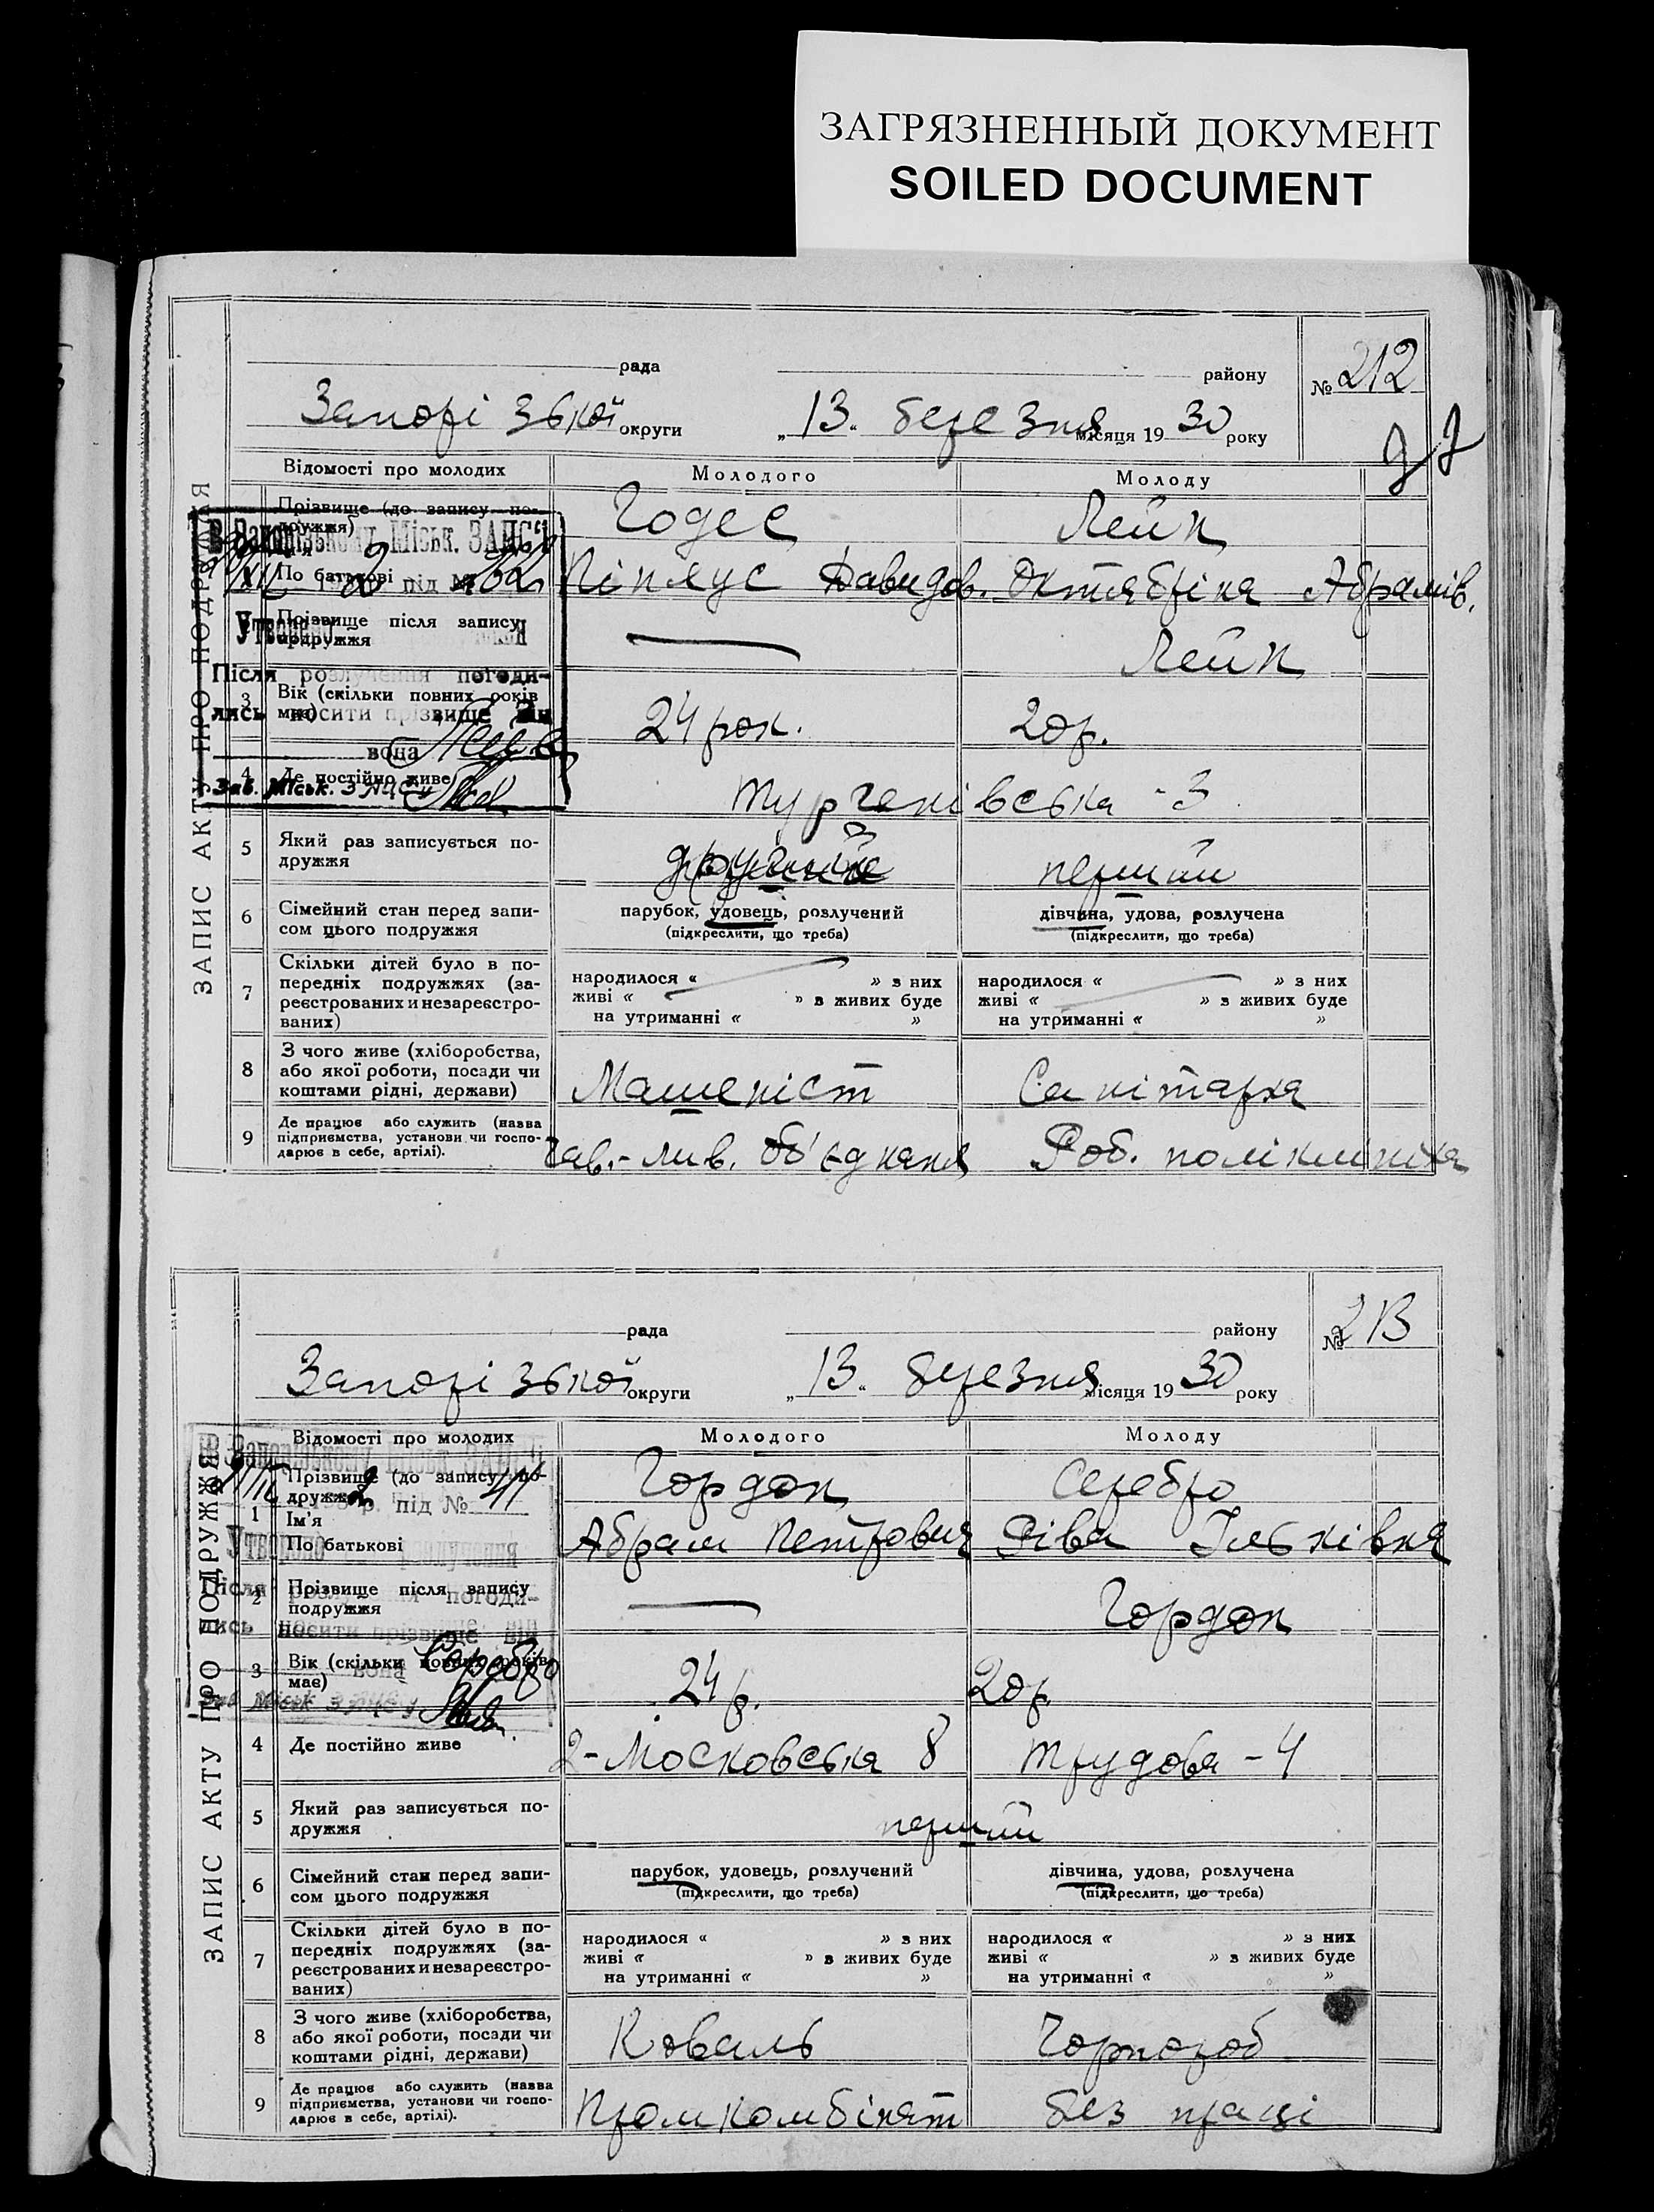 ЗАГРЯЗНЕННЫЙ ДОКУМЕНТ
SOILED DOCUMENT
ЗАПИС АКТУ ПРО ПОДРУЖЖЯ
рада району № 212
Запорізької округи „13“ березня місяця 1930 року
Відомості про молодих Молодого Молоду
Прізвище (до запису подружжя) Годес Лейн
По батькові Давидов. Октябріна Абрамів.
Прізвище після запису подружжя — Лейн
3 Вік (скільки повних років має) 24 рок. 20 р.
4 Де постійно живе Тургенівська - 3
5 Який раз записується по-
дружжя другий перший
6 Сімейний стан перед запи-
сом цього подружжя
парубок, удовець, розлучений дівчина, удова, розлучена
(підкреслити, що треба) (підкреслити, що треба)
7 Скільки дітей було в по-
передніх подружжях (за-
реєстрованих и незареєстро-
ваних)
народилося « » з них народилося « » з них
живі « » з живих буде живі « » з живих буде
на утриманні « » на утриманні « »
8 З чого живе (хліборобства,
або якої роботи, посади чи
коштами рідні, держави) Машеніст Санітарка
9 Де працює або служить (назва
підприємства, установи чи госпо-
дарює в себе, артілі). Чав.-лив. об'єднаня Роб. поліклініка
В Запорізькому Міськ. ЗАГС'і
під №
Утворено
Після розлучення погоди-
лись носити прізвище він
вона
Зав. Міськ. ЗАГС'у
ЗАПИС АКТУ ПРО ПОДРУЖЖЯ
рада району № 213
Запорізької округи „13“ березня місяця 1930 року
Відомості про молодих Молодого Молоду
1 Прізвище (до запису по-
дружжя) Гордон Серебро
Ім'я
По батькові Абрам Петрович Ріва Ільківна
2 Прізвище після запису
подружжя — Гордон
3 Вік (скільки повних років
має) 24 р. 20 р.
4 Де постійно живе 2-Московська 8 Трудова - 4
5 Який раз записується по-
дружжя перший
6 Сімейний стан перед запи-
сом цього подружжя
парубок, удовець, розлучений дівчина, удова, розлучена
(підкреслити, що треба) (підкреслити, що треба)
7 Скільки дітей було в по-
передніх подружжях (за-
реєстрованих и незареєстро-
ваних)
народилося « » з них народилося « » з них
живі « » з живих буде живі « » з живих буде
на утриманні « » на утриманні « »
8 З чого живе (хліборобства,
або якої роботи, посади чи
коштами рідні, держави) Коваль Чорнороб
9 Де працює або служить (назва
підприємства, установи чи госпо-
дарює в себе, артілі). Промкомбінат без праці
під №
Утворено розлучення
Після розлучення погоди-
лись носити прізвище він
вона Серебро